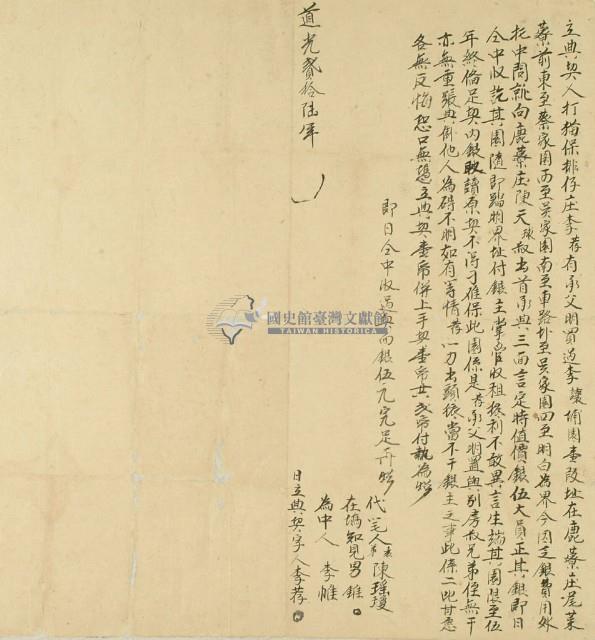 立典契人打猫保排仔庄李荐有承父明買過李讓埔園壹段址在鹿藔庄尾菜
藔前東至蔡家園西至吳家園南至車路北至吳家園四至明白為界今因乏銀費用外
托中問就向鹿藔庄陳天叔出首承典三面言定時值價銀伍大員正其銀即日
仝中收訖其園隨即踏明界址付銀主掌管收租抵利不敢異言生端其園限至伍
年終備足契內銀取贖原契不得刁难保此園係是荐承父明置與別房叔兄弟侄無干
亦無重張典掛他人為碍不明如有等情荐一力出頭抵當不干銀主之事此係二比甘愿
各無反悔恐口無憑立典契壹帋併上手契壹帋共弍帋付執為炤
即日仝中收過契面銀伍元完足再炤
代笔人 陳瑤瓊
在塲知見男 錐
為中人 李帷
道光貳拾陆年 日立典契字人李荐
國史館臺灣文獻館
TAIWAN HISTORICA